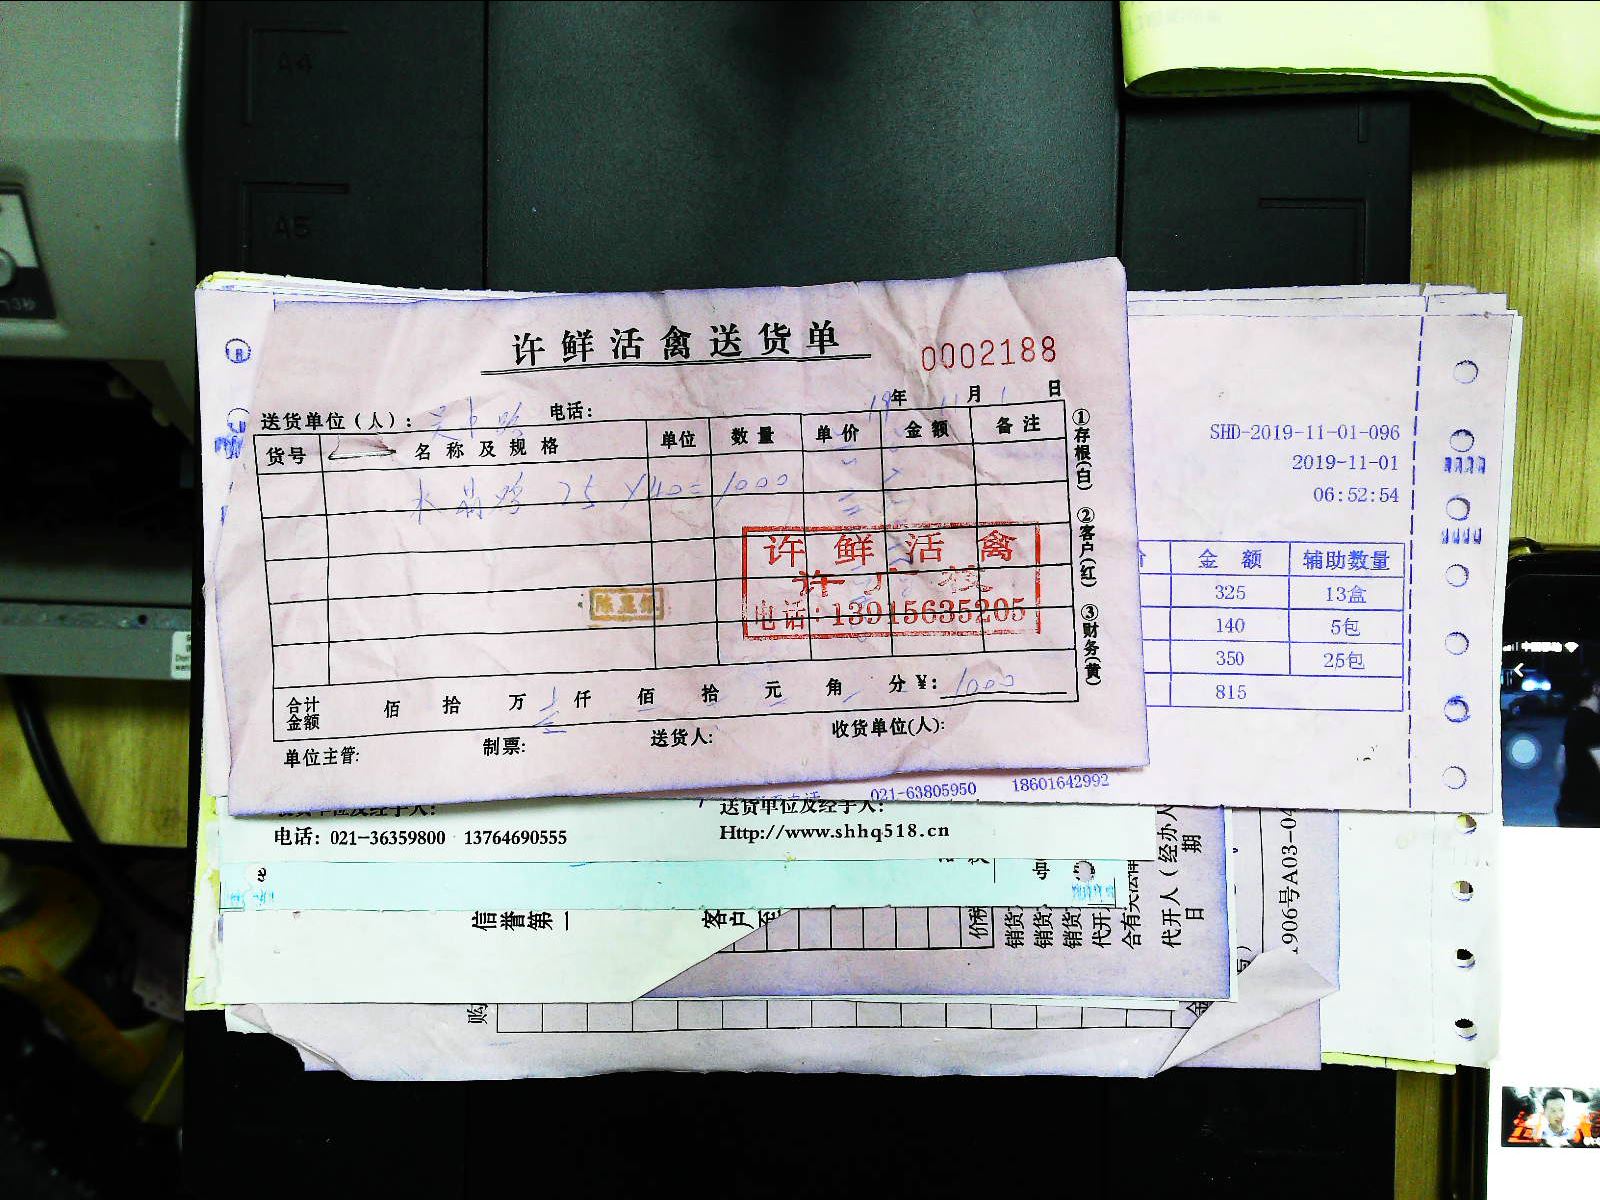 A4
A5
许鲜活禽送货单
0002188
送货单位（人）： 吴中路 电话：
19年 11月 1日
货号 名称及规格 单位 数量 单价 金额 备注
水晶鸡 25 × 40 = 1000
许鲜活禽
电话：13915635205
合计金额 佰 拾 万 仟 佰 拾 元 角 分 ￥：1000
单位主管： 制票： 送货人： 收货单位(人)：
①存根(白) ②客户(红) ③财务(黄)
SHD-2019-11-01-096
2019-11-01
06:52:54
金额 辅助数量
325 13盒
140 5包
350 25包
815
021-63805950 18601642992
送货单位及经手人：
电话：021-36359800 13764690555
Http://www.shhq518.cn
信誉第一
客户至
价税
销货
销货
销货
代开
代开人（经办人
日期
1906号A03-04
购